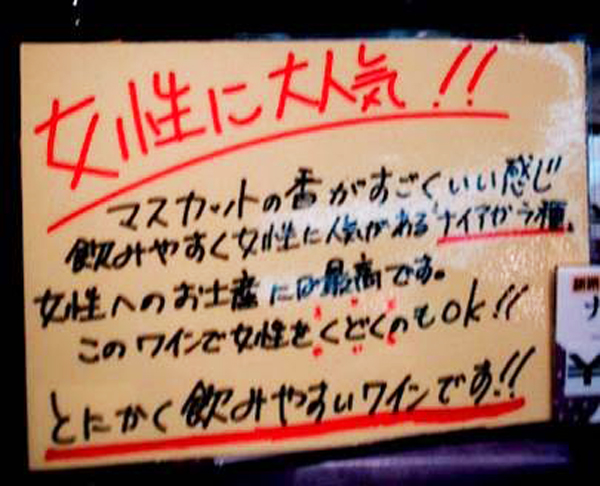 女性に大人気!!
マスカットの香がすごくいい感じ
飲みやすく女性に人気があるナイアガラ種。
女性へのお土産には最高です。
このワインで女性をくどくのもOK!!
とにかく飲みやすいワインです!!